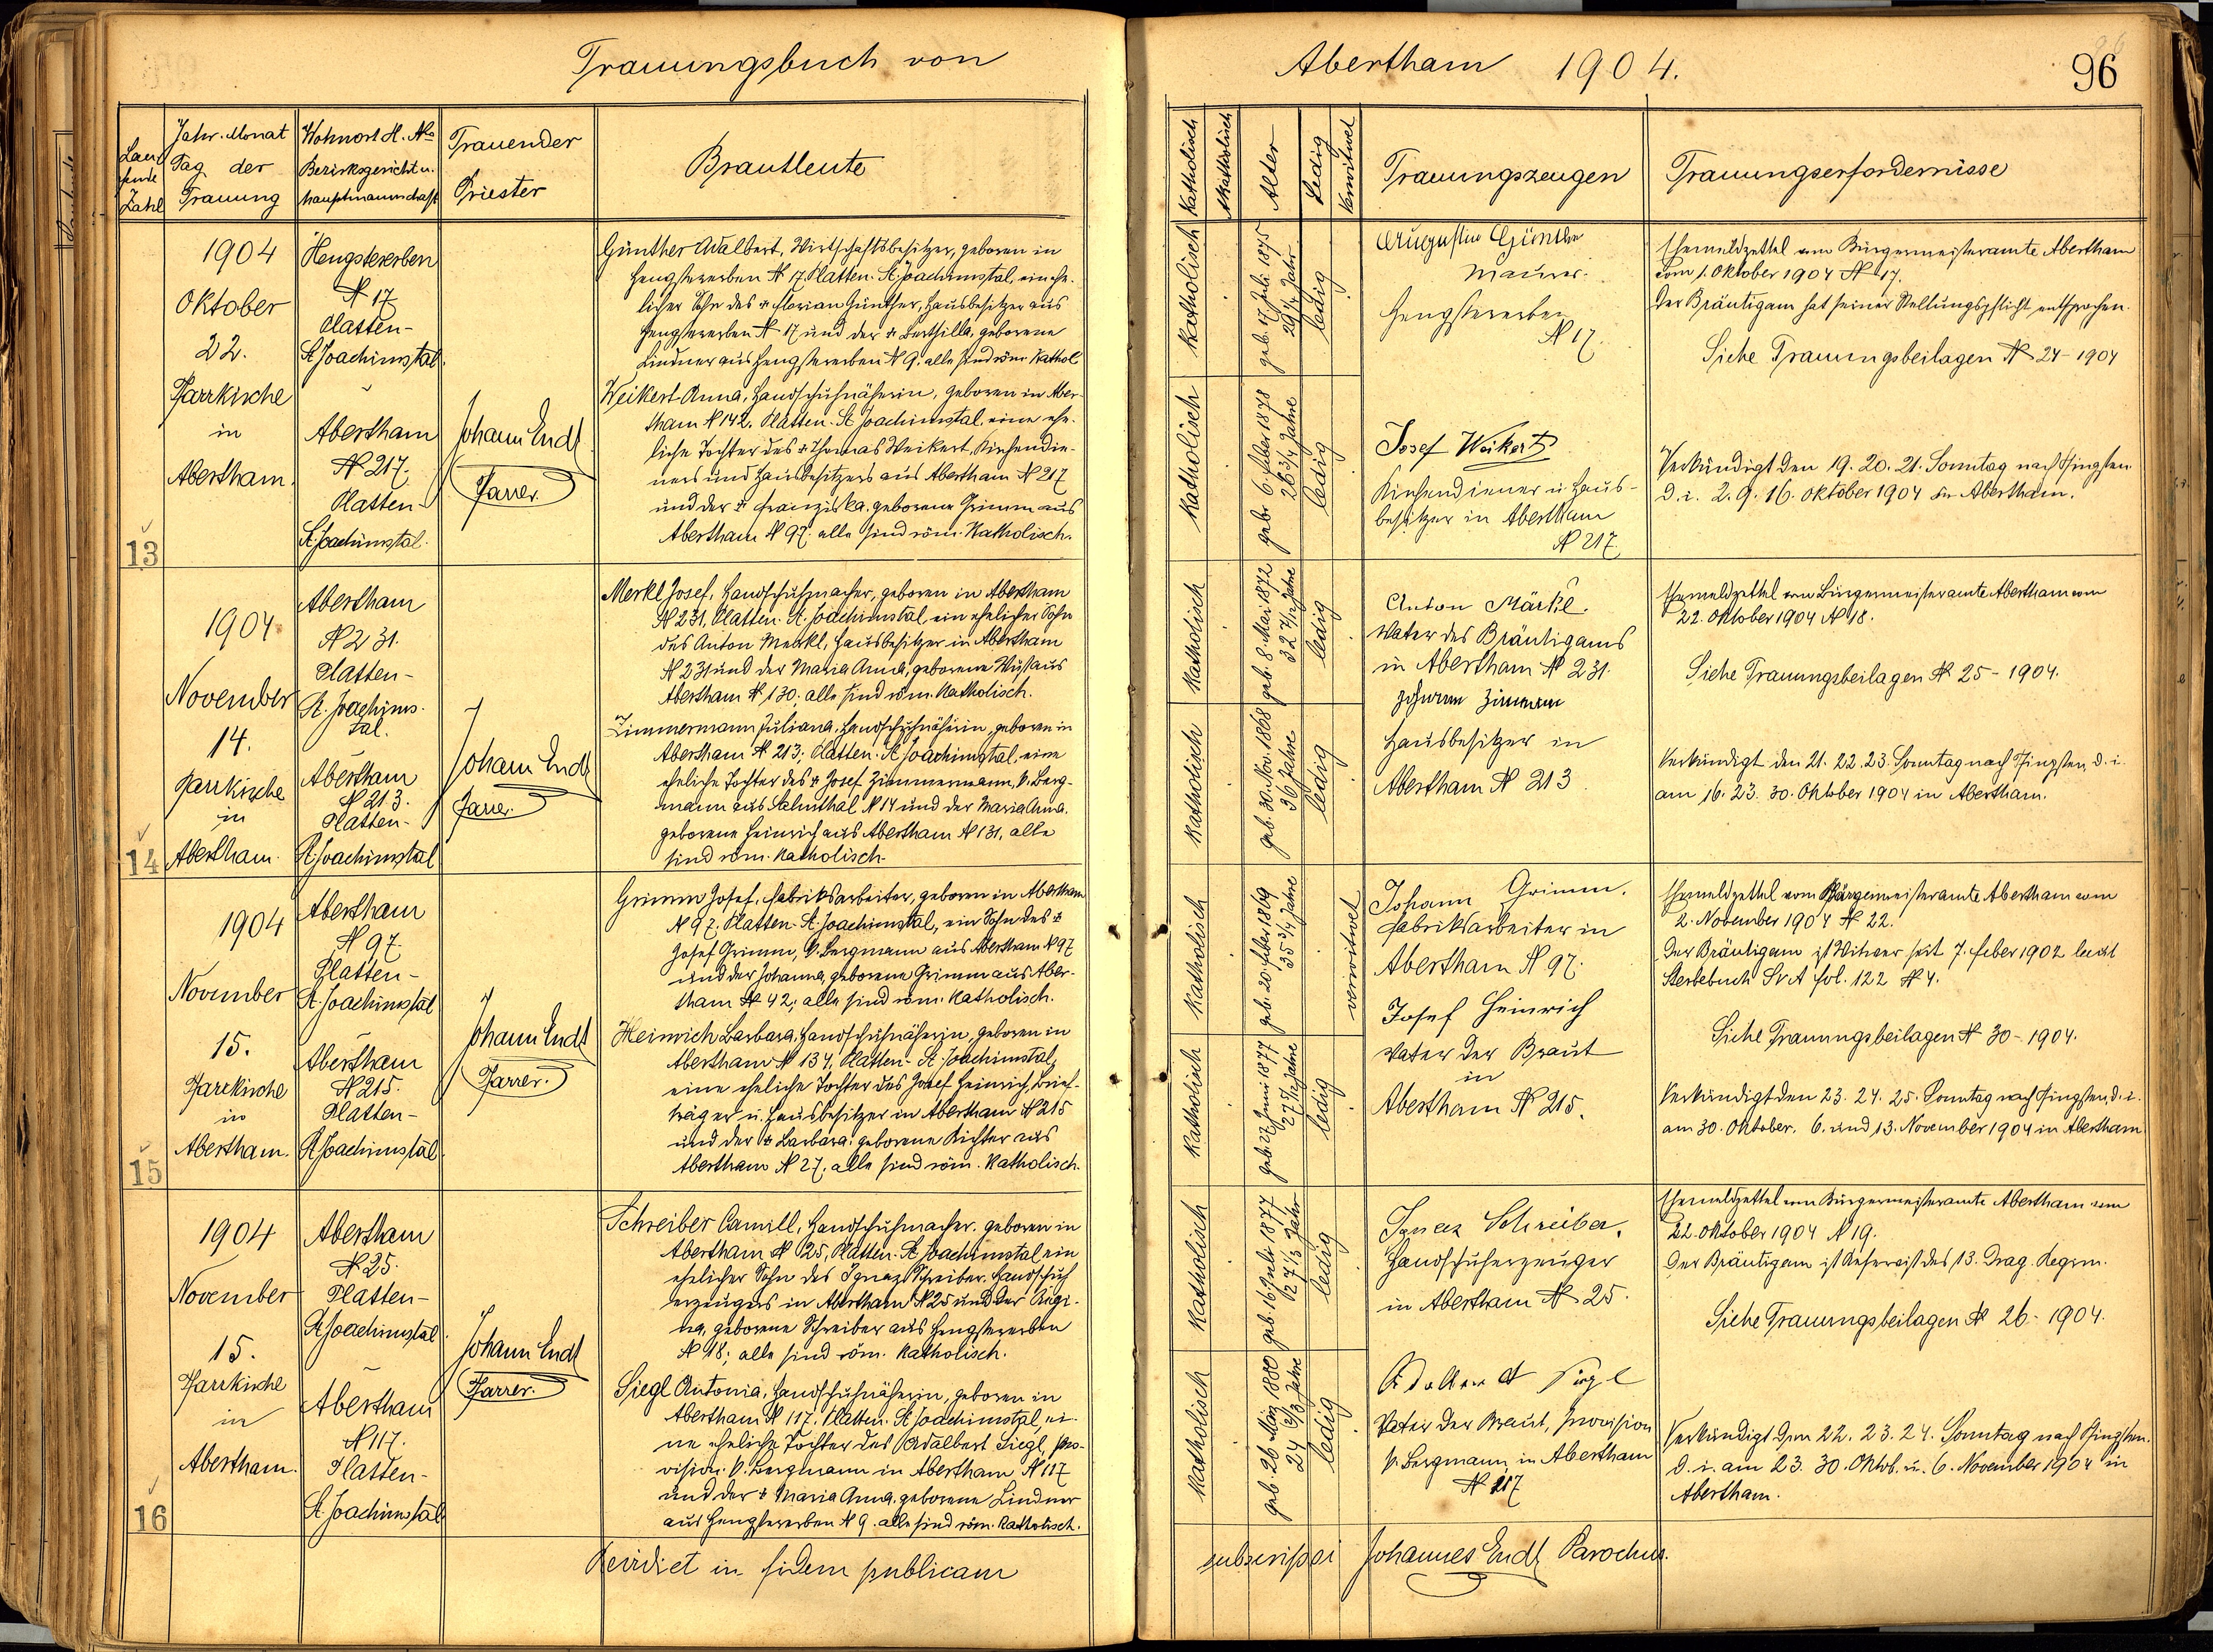 Trauungsbuch von
Abertham 1904.
96
Laufende Zahl
Jahr. Monat
Tag der
Trauung
Wohnort H. No
Bezirksgericht u.
Hauptmannschaft
Trauender
Priester
Brautleute
Katholisch
Akatholisch
Alter
Ledig
Verwitwet
Trauungszeugen
Trauungserfordernisse
13
1904
Oktober
22.
Pfarrkirche
in
Abertham.
Hengstererben
N 17
Platten-
St. Joachimstal.
Abertham
N 217.
Platten-
St. Joachimstal.
Johann Endt
Pfarrer.
Günther Adalbert, Wirtschaftsbesitzer, geboren in
Hengstererben N 17. Platten-St. Joachimstal, ein ehe-
licher Sohn des + Florian Günther, Hausbesitzer aus
Hengstererben N 17 und der + Berthilla, geborene
Lindner aus Hengstererben N 9. alle sind röm. Kathol
Weikert Anna, Handschuhnäherin, geboren in Aber-
tham N 142. Platten-St Joachimstal, eine ehe-
liche Tochter des + Thomas Weikert, Kirchendie-
ners und Hausbesitzers aus Abertham N 217
und der + Franziska, geborene Grimm aus
Abertham N 97. alle sind röm. Katholisch.
Katholisch
geb. 17. Juli 1875
29 1/4 Jahr
ledig
Katholisch
geb. 6. Feber 1878
26 3/4 Jahre
ledig
Augustin Günther
Maurer.
Hengstererben
N 17.
Josef Weikert
Kirchendiener u. Haus-
besitzer in Abertham
N 217.
Ehemeldzettel vom Bürgermeisteramte Abertham
vom 1. Oktober 1904 N 17.
Der Bräutigam hat seiner Stellungspflicht entsprochen.
Siehe Trauungsbeilagen N 24-1904
Verkündigt den 19. 20. 21. Sonntag nach Pfingsten
d. i. 2. 9. 16. Oktober 1904 in Abertham.
14
1904
November
14.
Pfarrkirche
in
Abertham.
Abertham
N 231.
Platten-
St. Joachims-
tal.
Abertham
N 213.
Platten-
St. Joachimstal
Johann Endt
Pfarrer.
Merkl Josef, Handschuhmacher, geboren in Abertham
N 231, Platten-St. Joachimstal ein ehelicher Sohn
des Anton Merkl, Hausbesitzer in Abertham
N 231 und der Maria Anna, geborene Wüst aus
Abertham N 130. alle sind röm. Katholisch.
Zimmermann Juliana, Handschuhnäherin, geboren in
Abertham N 213; Platten-St. Joachimstal, eine
eheliche Tochter des + Josef Zimmermann, k. Berg-
mann aus Salmthal N 14 und der Maria Anna,
geborene Heinrich aus Abertham N 131, alle
sind röm. Katholisch.
Katholisch
geb. 8. Mai 1872
ledig
Katholisch
geb. 30. Nov. 1868
36 Jahre
ledig
Anton Märkl.
Vater des Bräutigams
in Abertham N 231.
Hausbesitzer in
Abertham N 213
Ehemeldzettel vom Bürgermeisteramte Abertham vom
22. Oktober 1904 N 18.
Siehe Trauungsbeilagen N 25-1904.
Verkündigt den 21. 22. 23. Sonntag nach Pfingsten, d. i.
am 16. 23. 30. Oktober 1904 in Abertham.
15
1904
November
15.
Pfarrkirche
in
Abertham.
Abertham
N 97.
Platten-
St. Joachimstal
Abertham
N 215.
Platten-
St. Joachimstal.
Johann Endt
Pfarrer.
Grimm Josef, Fabriksarbeiter, geboren in Abertham
N 97. Platten-St. Joachimstal, ein Sohn des +
Josef Grimm, k. Bergmann aus Abertham N 97
und der Johanna, geborene Grimm aus Aber-
tham N 42; alle sind röm. Katholisch.
Heinrich Barbara, Handschuhnäherin, geboren in
Abertham N 134, Platten-St. Joachimstal,
eine eheliche Tochter des Josef Heinrich, Brief-
träger u. Hausbesitzer in Abertham N 215
und der + Barbara, geborene Richter aus
Abertham N 27, alle sind röm. Katholisch.
Katholisch
geb. 20. Feber 1869
35 3/4 Jahre
verwitwet
Katholisch
geb. 27. Juni 1877
27 5/12 Jahre
ledig
Johann Grimm.
Fabriksarbeiter in
Abertham N 97.
Josef Heinrich
Vater der Braut
in
Abertham N 215.
Ehemeldzettel vom Bürgermeisteramte Abertham vom
2. November 1904 N 22.
Der Bräutigam ist Witwer seit 7. Feber 1902 laut
Sterbebuch Lr A fol. 122 N 4.
Siehe Trauungsbeilagen N 30-1904.
Verkündigt den 23. 24. 25. Sonntag nach Pfingsten, d. i.
am 30. Oktober. 6. und 13. November 1904 in Abertham
16
1904
November
15.
Pfarrkirche
in
Abertham.
Abertham
N 25.
Platten-
St. Joachimstal.
Abertham
N 117.
Platten-
St. Joachimstal
Johann Endt
Pfarrer.
Schreiber Camill, Handschuhmacher, geboren in
Abertham N 25, Platten-St. Joachimstal, ein
ehelicher Sohn des Ignaz Schreiber, Handschuh
erzeugers in Abertham N 25 und der Regi-
na, geborene Schreiber aus Hengstererben
N 18; alle sind röm. Katholisch.
Siegl Antonia, Handschuhnäherin, geboren in
Abertham N 117. Platten-St. Joachimstal, ei-
ne eheliche Tochter des Adalbert Siegl, pro-
vision. k. Bergmann in Abertham N 117
und der + Maria Anna, geborene Lindner
aus Hengstererben N 9. alle sind röm. Katholisch.
Katholisch
geb. 16. Juli 1877
27 1/3 Jahr
ledig
Katholisch
geb. 26. März 1880
24 2/3 Jahre
ledig
Ignaz Schreiber.
Handschuherzeuger
in Abertham N 25.
Siegl
Vater der Braut, provision
k. Bergmann in Abertham
N 117
Ehemeldzettel vom Bürgermeisteramte Abertham vom
22. Oktober 1904 N 19.
Der Bräutigam ist Reservist des 13. Drag. Regim.
Siehe Trauungsbeilagen N 26-1904.
Verkündigt den 22. 23. 24. Sonntag nach Pfingsten.
d. i. am 23. 30. Oktob. u. 6. November 1904 in
Abertham.
in fidem publicam
subscripsi Johannes Endt Parochus.